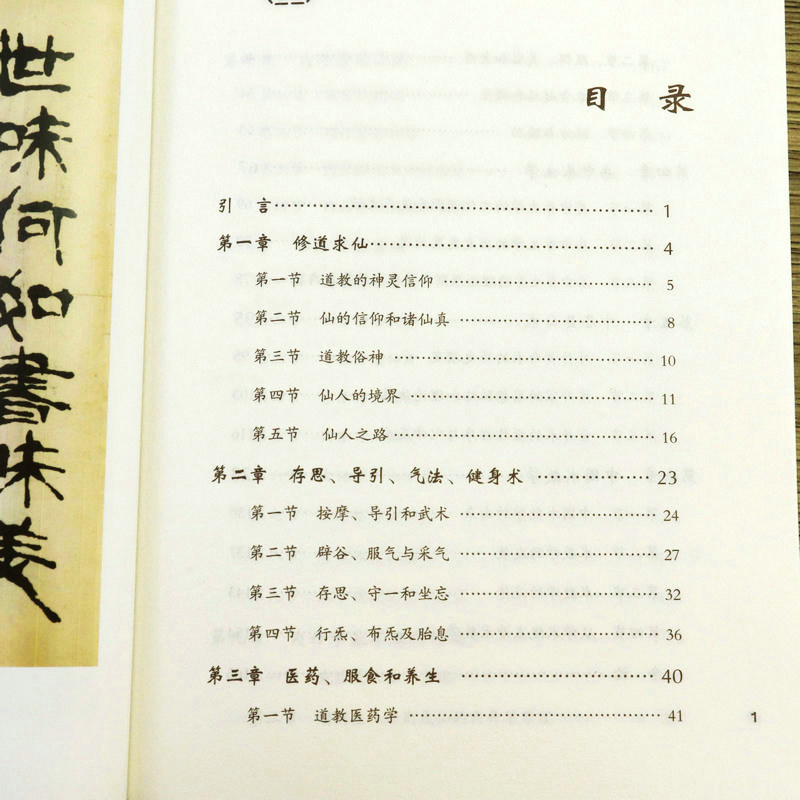 世味何如书味美
目 录
引 言…………………………………………………… 1
第一章 修道求仙…………………………………………… 4
第一节 道教的神灵信仰…………………………… 5
第二节 仙的信仰和诸仙真………………………… 8
第三节 道教俗神…………………………………… 10
第四节 仙人的境界………………………………… 11
第五节 仙人之路…………………………………… 16
第二章 存思、导引、气法、健身术 …………………… 23
第一节 按摩、导引和武术………………………… 24
第二节 辟谷、服气与采气………………………… 27
第三节 存思、守一和坐忘………………………… 32
第四节 行炁、布炁及胎息………………………… 36
第三章 医药、服食和养生 ……………………………… 40
第一节 道教医药学………………………………… 41
1